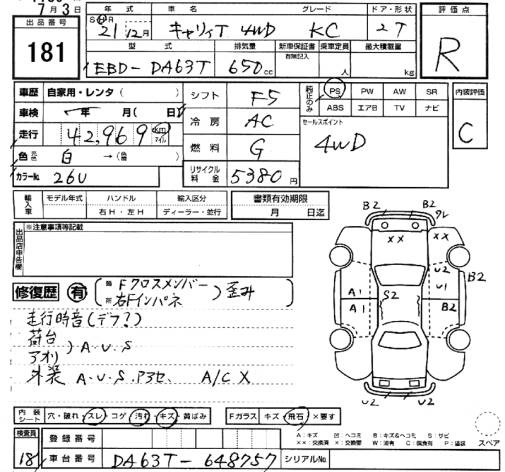 7月3日
出品番号
181
年式 車名 グレード ドア・形状
S H R 21年 12月 キャリイT 4WD KC 2T
型式 排気量 新車保証書 乗車定員 最大積載量
有(無記入)
EBD-DA63T 650cc 人 kg
評価点
R
車歴 自家用・レンタ( )
車検 年 月( 日)
走行 42,969 km マイル
色 元色 白→(替 )
カラーNo. 26U
シフト F5
冷房 AC
燃料 G
リサイクル料金 5380円
純正のみ PS PW AW SR
ABS エアB TV ナビ
セールスポイント
4WD
内装評価
C
輸入車 モデル年式 ハンドル 輸入区分
右H・左H ディーラー・並行
書類有効期限
月 日迄
出品店申告欄
※注意事項等記載
修復歴 有 Fクロスメンバー 右Fインパネ 歪み
走行時音(デフ?)
荷台
アオリ
A・U・S
外装 A・U・S・アセ、 A/C X
B2 B2
XX
A1 A1
S2
U2
U1
B2
B2 U2
内装シート 穴・破れ・スレ・コゲ・汚れ・キズ・黄ばみ
Fガラス キズ・飛石・×要す
検査員
181
登録番号
車台番号 DA63T-648757 シリアルNo.
スペア